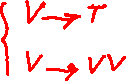 V → T
V → VV